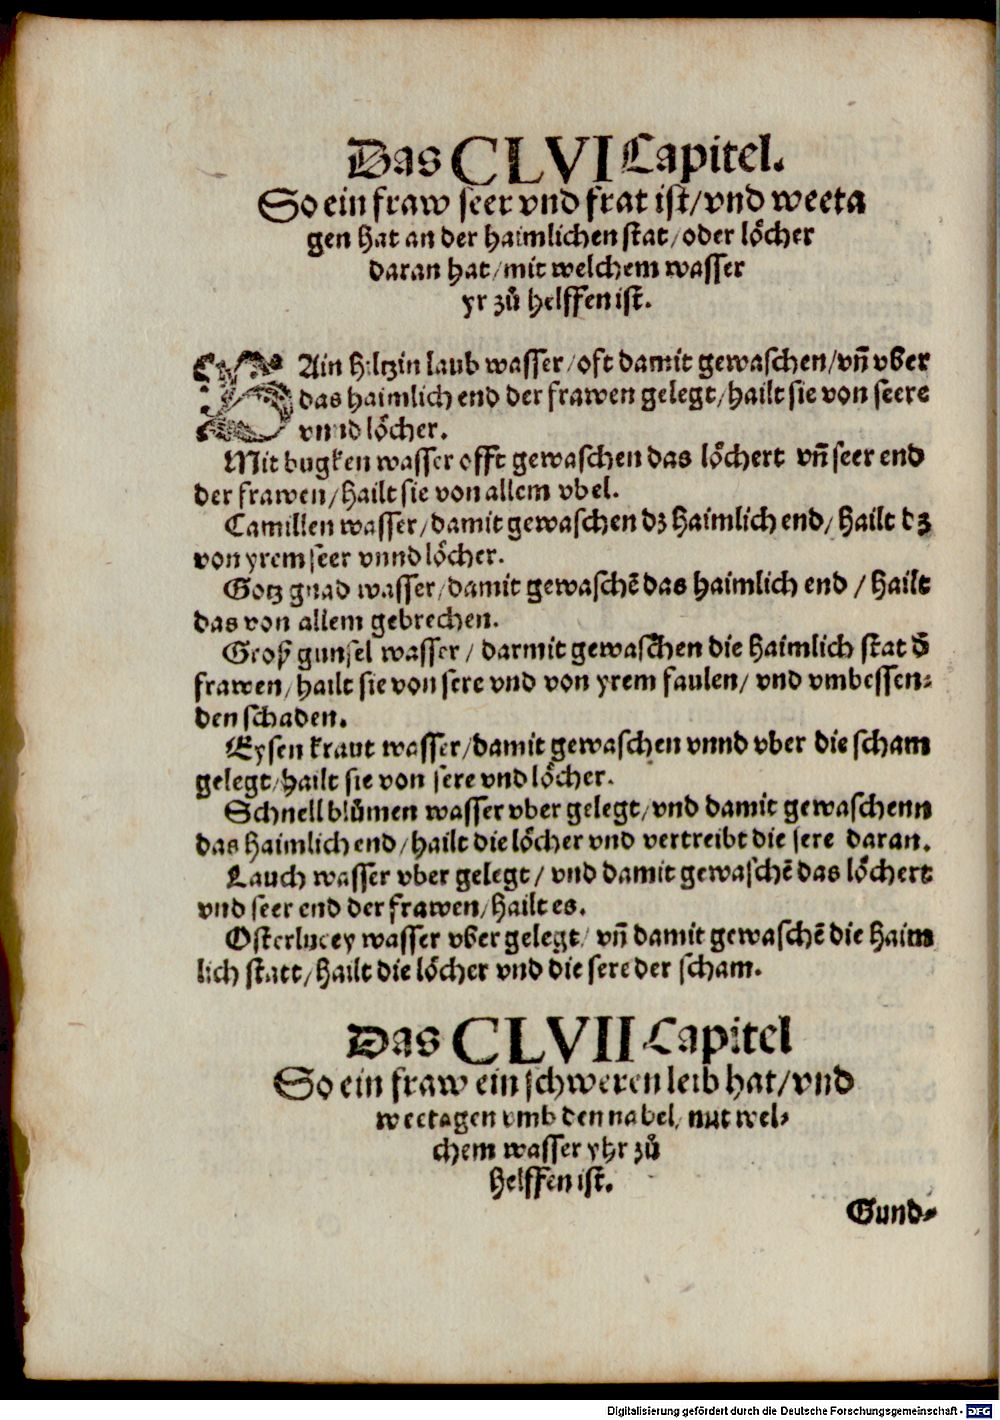 Das CLVI Capitel.
So ein fraw seer vnd frat ist/vnd weeta
gen hat an der haimlichen stat/oder lôcher
daran hat/mit welchem wasser
yr zů helffen ist.
BAin hiltzin laub wasser/oft damit gewaschen/vñ vber
das haimlich end der frawen gelegt/hailt sie von seere
vnnd lôcher.
Mit bugken wasser offt gewaschen das lôchert vñ seer end
der frawen/hailt sie von allem vbel.
Camillen wasser/damit gewaschen dz haimlich end/hailt dz
von yrem seer vnnd lôcher.
Gotz gnad wasser/damit gewaschẽ das haimlich end/hailt
das von allem gebrechen.
Groß gunsel wasser/darmit gewaschen die haimlich stat d̄
frawen/hailt sie von sere vnd von yrem faulen/vnd vmbessen⸗
den schaden.
Eysen kraut wasser/damit gewaschen vnnd vber die scham
gelegt/hailt sie von sere vnd lôcher.
Schnellblůmen wasser vber gelegt/vnd damit gewaschenn
das haimlich end/hailt die lôcher vnd vertreibt die sere daran.
Lauch wasser vber gelegt/vnd damit gewaschẽ das lôchert
vnd seer end der frawen/hailt es.
Osterlucey wasser vber gelegt/vñ damit gewaschẽ die haim
lich statt/hailt die lôcher vnd die sere der scham.
Das CLVII Capitel
So ein fraw ein schweren leib hat/vnd
weetagen vmb den nabel/mit wel⸗
chem wasser yhr zů
helffen ist.
Gund⸗
Digitalisierung gefördert durch die Deutsche Forschungsgemeinschaft - DFG